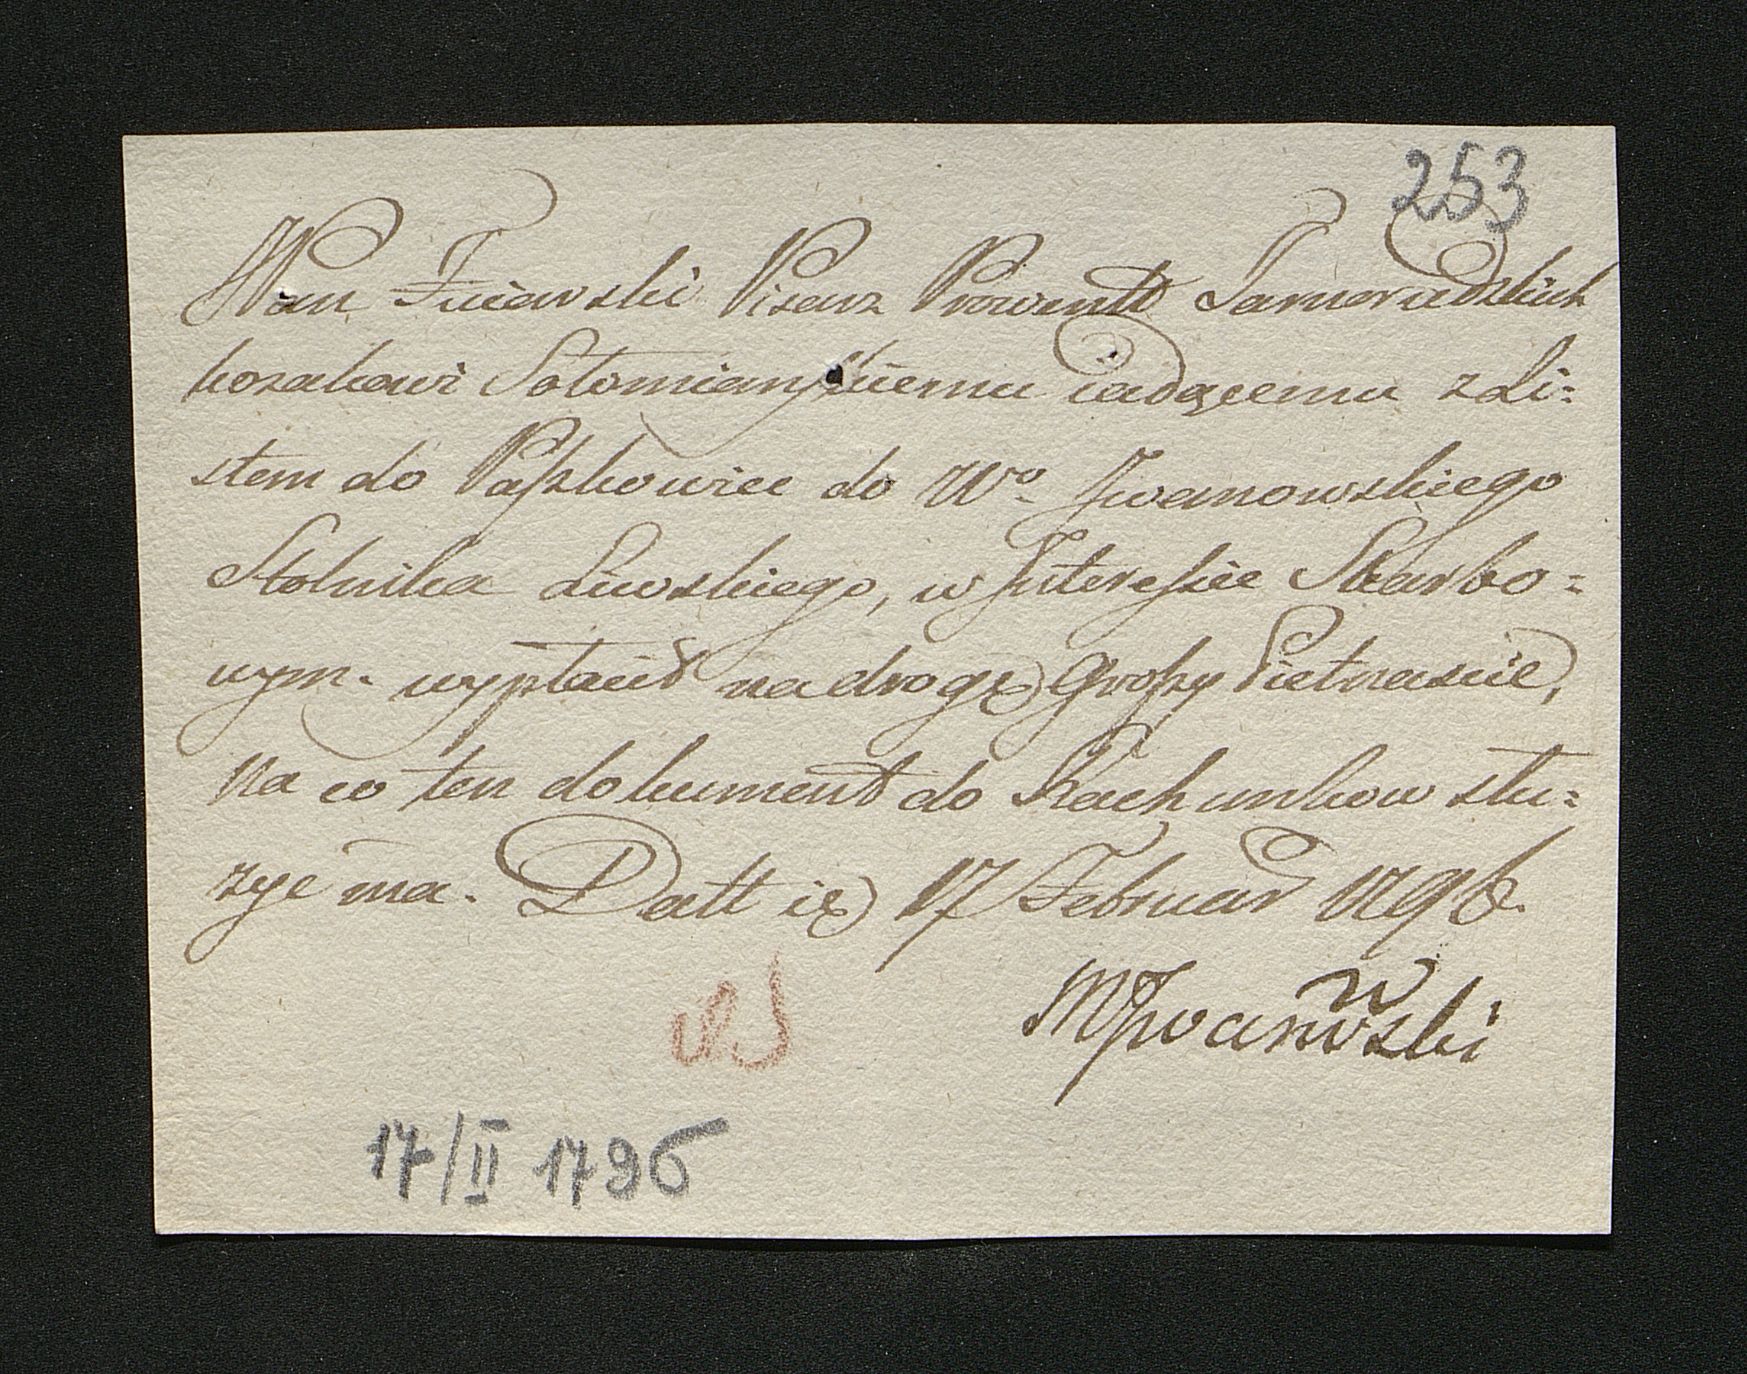 253
Pan Fuiewski Pisarz Prowentt Tarnorudzkich
kozakowi Sołomianskiemu iadącemu z Li=
stem do Paszkowiec do Wo. Jwanowskiego
Stolnika Liwskiego, w Jnteresie Skarbo=
wym. wypłacił na drogę Groszy Pietnascie,
na co ten dokument do Rachunkow słu=
zyc ma. Datt ię 17 Februar 1796.
MJwanowski
17/II 1796